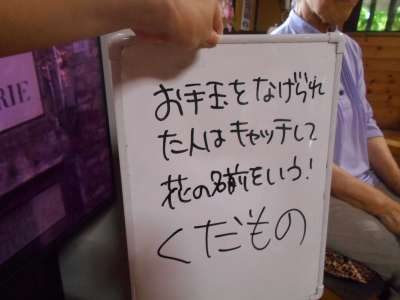 お手玉をなげられ
た人はキャッチして
花の名前をいう!
くだもの
RIE